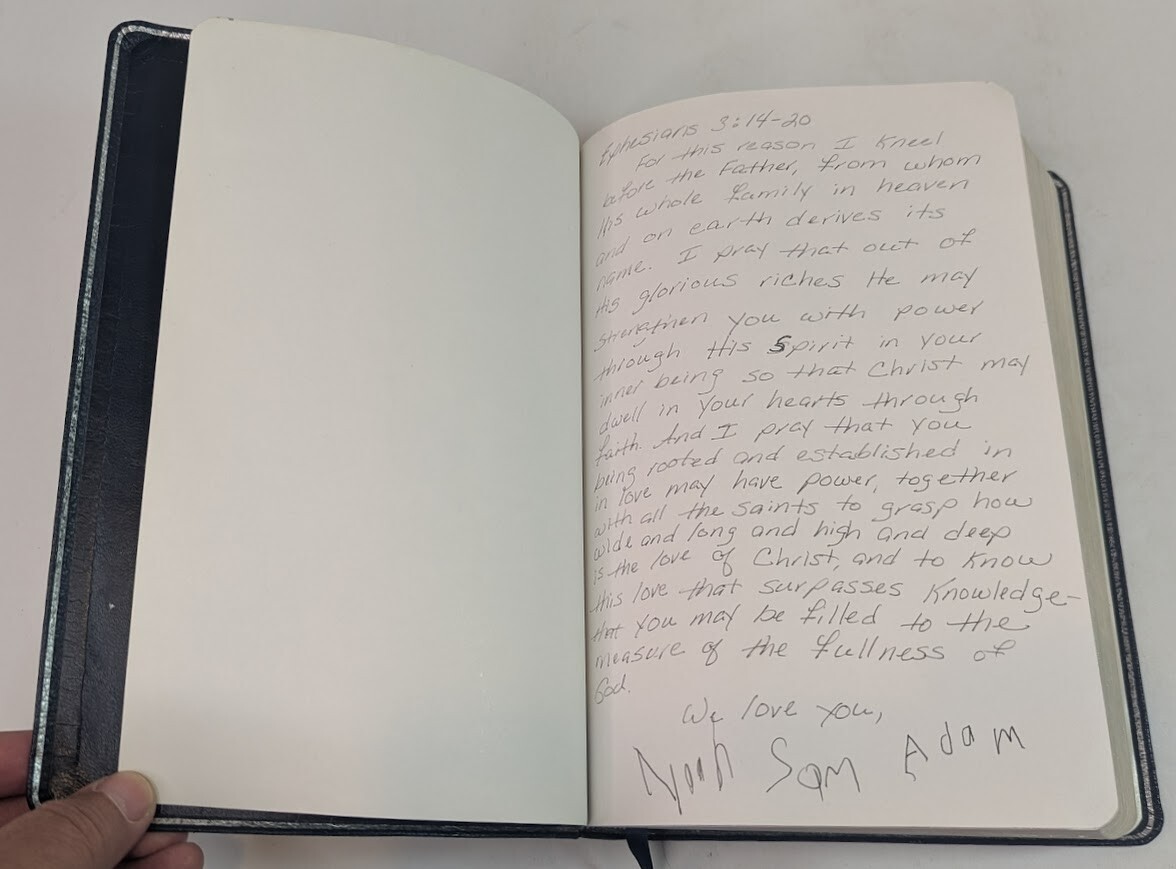 Ephesians 3:14-20
For this reason I kneel
before the Father, from whom
His whole family in heaven
and on earth derives its
name. I pray that out of
His glorious riches He may
strengthen you with power
through His Spirit in your
inner being so that Christ may
dwell in your hearts through
faith. And I pray that you
being rooted and established in
in love may have power, together
with all the saints to grasp how
wide and long and high and deep
is the love of Christ, and to know
this love that surpasses knowledge-
that you may be filled to the
measure of the fullness of
God.
We love you,
Noah Sam Adam